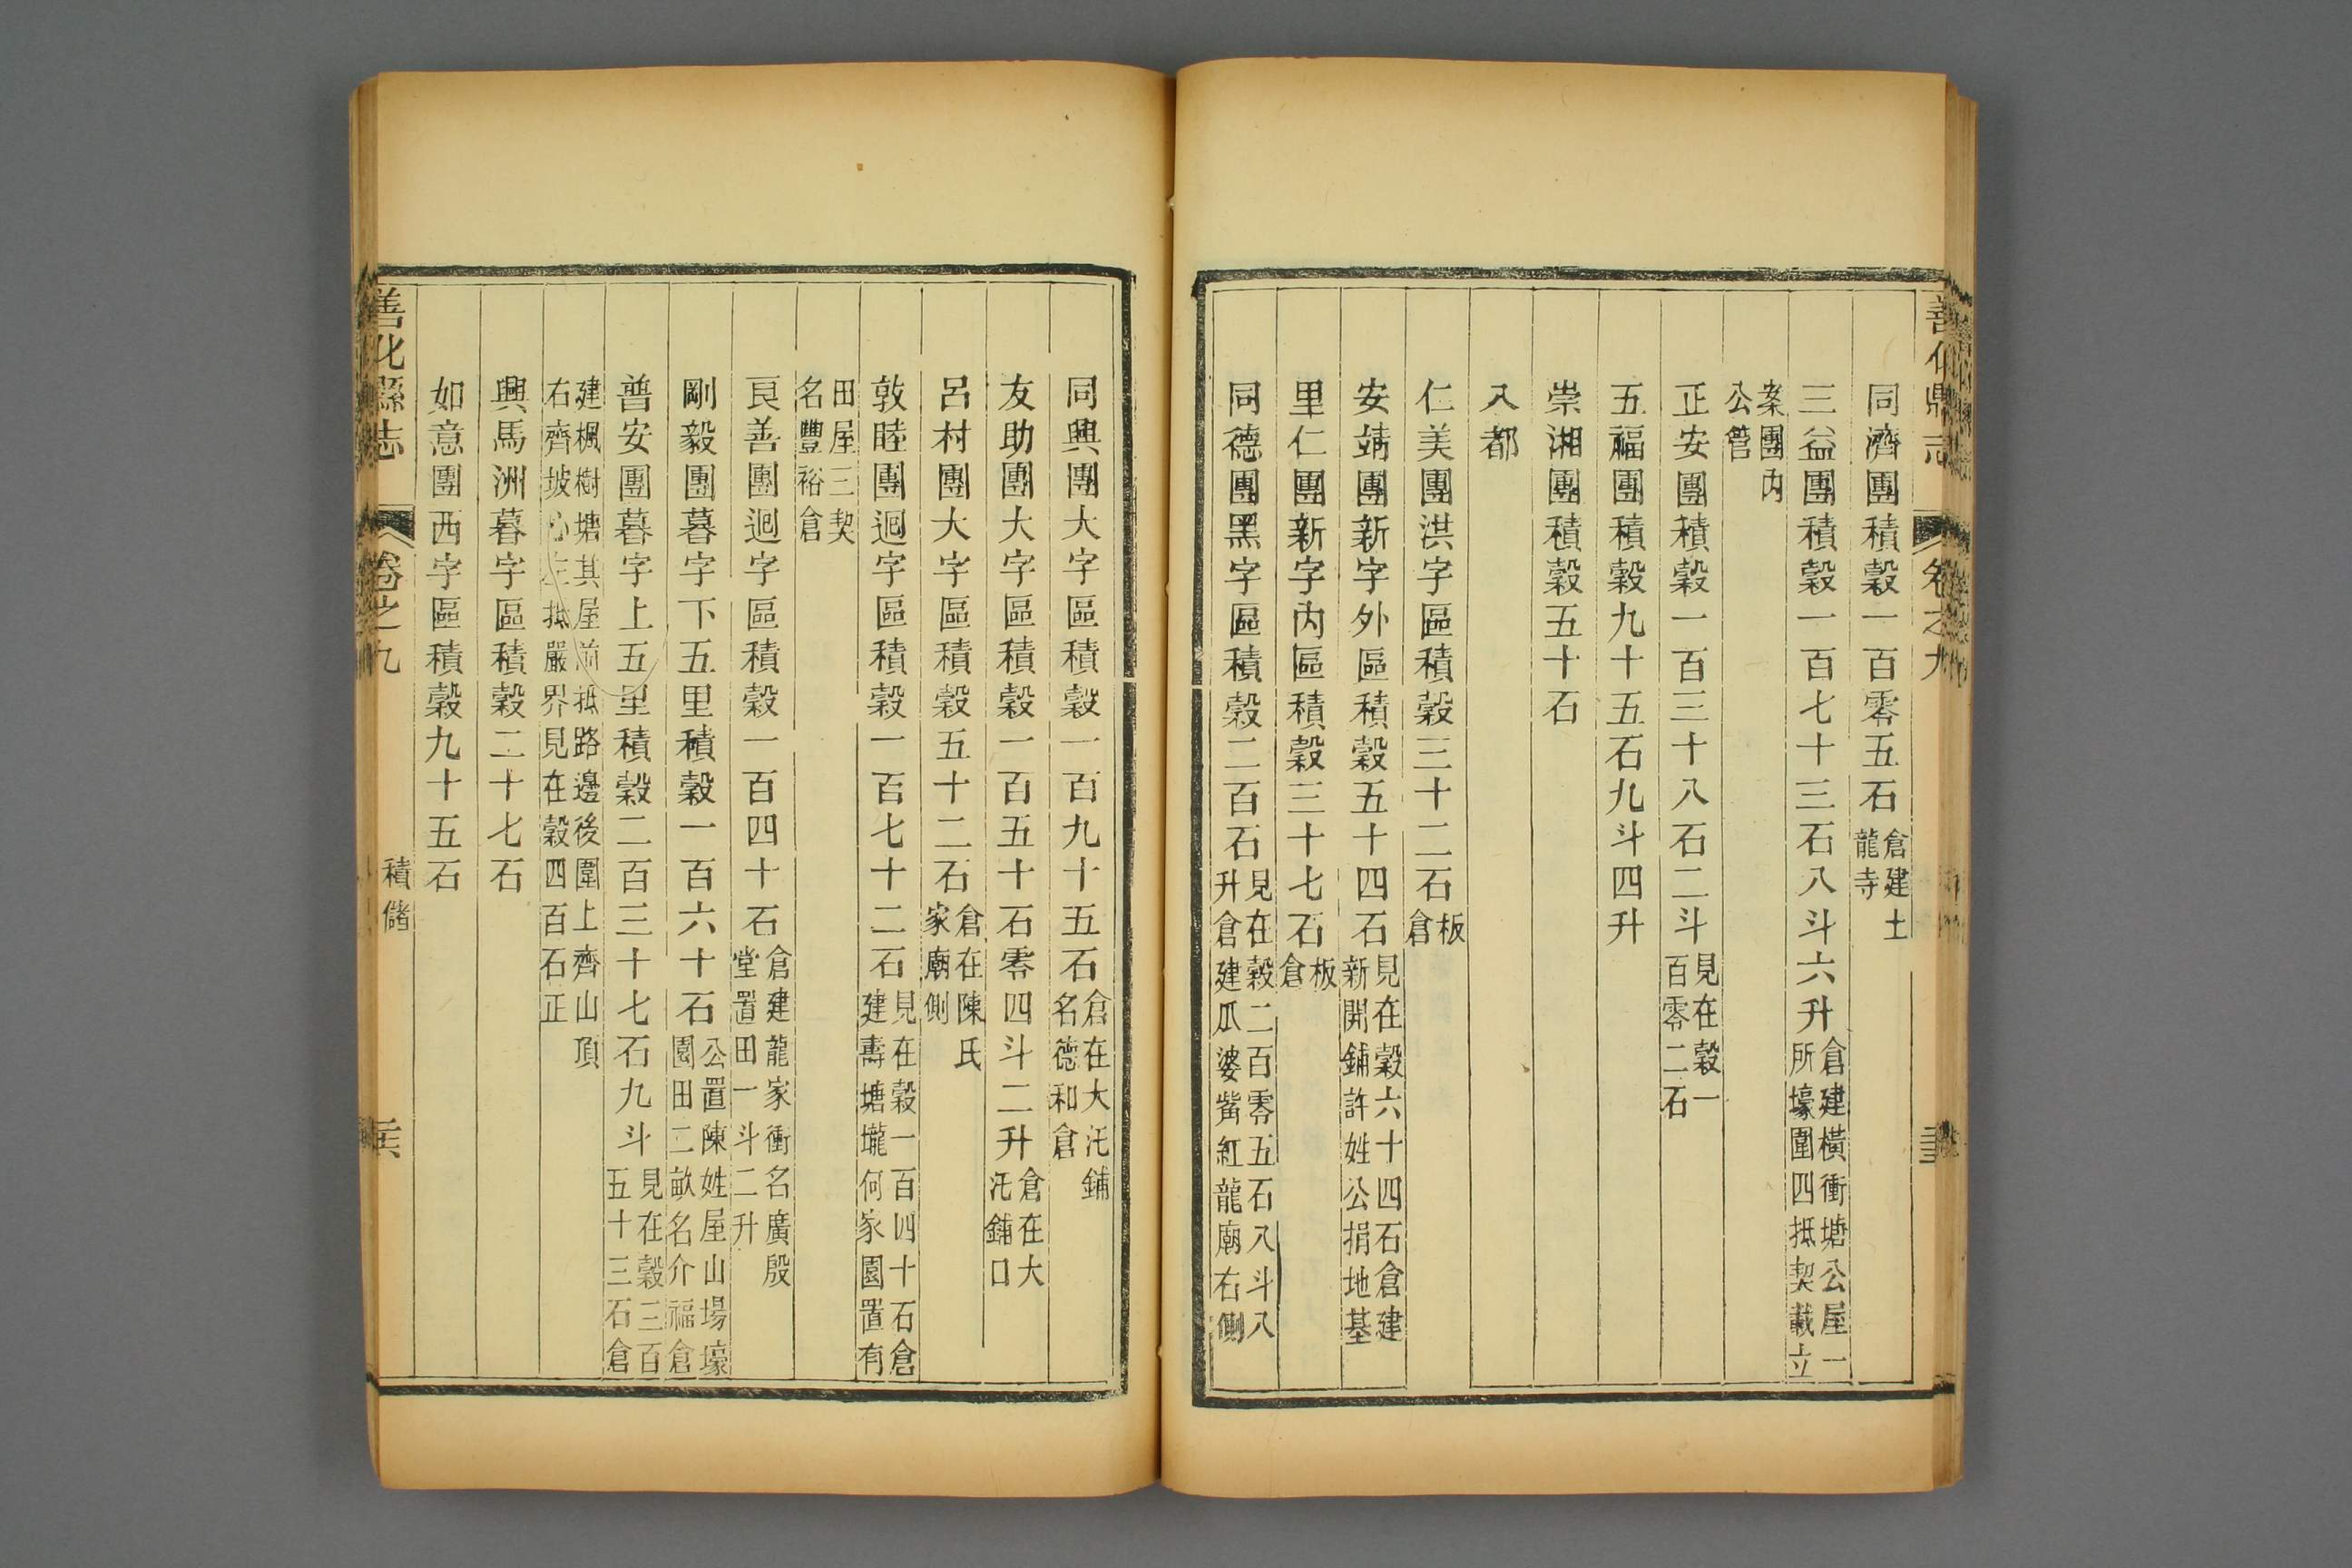 同濟團積穀一百零五石倉建土龍寺
三益團積穀一百七十三石八斗六升倉建橫衝塘公屋一所壕圍四抵契載立
案團內公管
正安團積穀一百三十八石二斗見在穀一百零二石
五福團積穀九十五石九斗四升
崇湘團積穀五十石
八都
仁美團洪字區積穀三十二石板倉
安靖團新字外區積穀五十四石見在穀六十四石倉建新開鋪許姓公捐地基
里仁團新字內區積穀三十七石板倉
同德團黑字區積穀二百石見在穀二百零五石八斗八升倉建瓜婆觜紅龍廟右側
同興團大字區積穀一百九十五石倉在大汑鋪名德和倉
友助團大字區積穀一百五十石零四斗二升倉在大汑鋪口
呂村團大字區積穀五十二石倉在陳氏家廟側
敦睦團迴字區積穀一百七十二石見在穀一百四十石倉建壽塘壠何家園置有
田屋三契名豐裕倉
良善團迴字區積穀一百四十石倉建龍家衝名廣殷堂置田一斗二升
剛毅團暮字下五里積穀一百六十石公置陳姓屋山場壕園田二畝名介福倉
普安團暮字上五里積穀二百三十七石九斗見在穀三百五十三石倉
建楓樹塘其屋前抵路邊後圍上齊山頂右齊坡心左抵嚴界見在穀四百石正
興馬洲暮字區積穀二十七石
如意團西字區積穀九十五石
善化縣志
卷之九
積儲